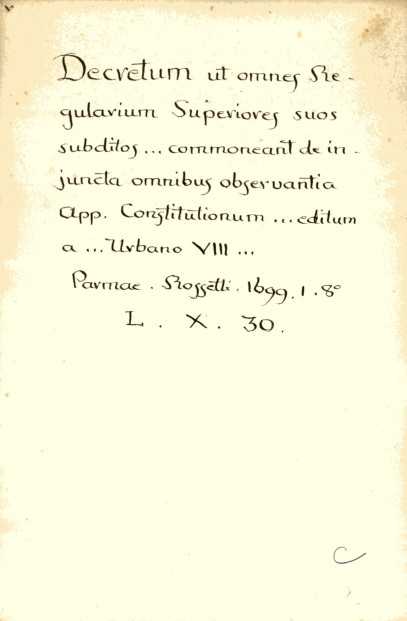 Decretum ut omnes Re-
gularium Superiores suos
subditos ... commoneant de in-
juncta omnibus observantia
App. Constitutionum ... editum
a ... Urbano VIII ...
Parmae . Rossetti . 1699 . 1 . 8°
L . X . 30 .
C